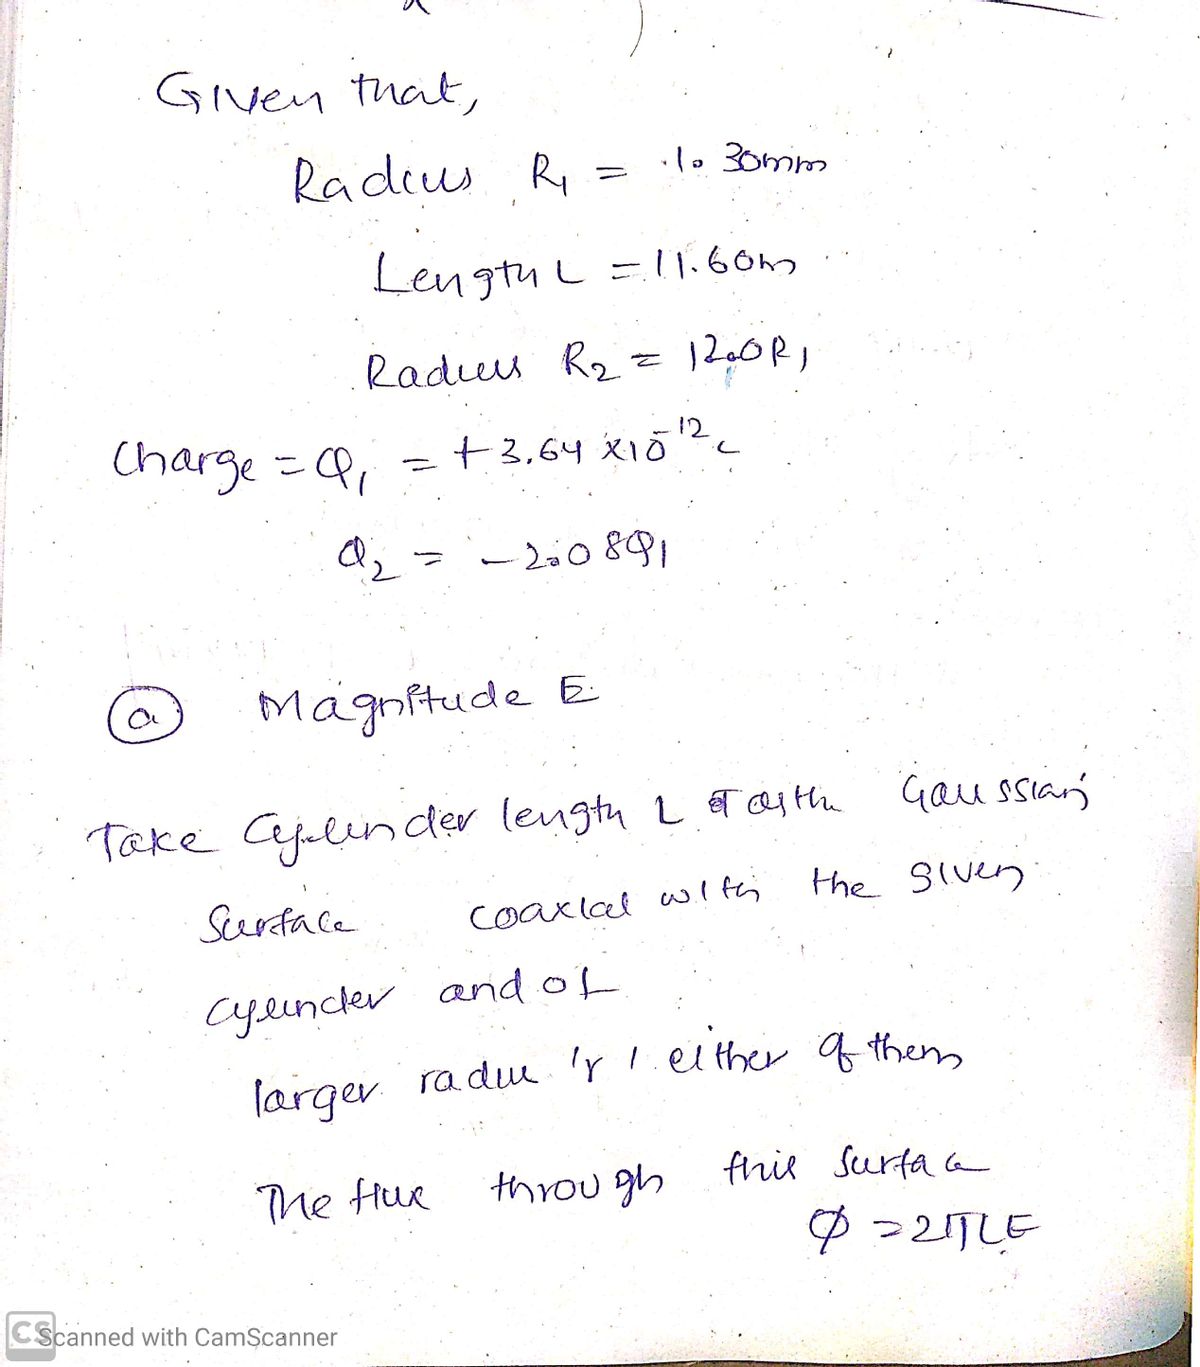 Given that,
Radius R₁ = 1.30mm
Length L = 11.60m
Radius R₂ = 12.0R₁
Charge = Q₁ = +3.64 × 10⁻¹² C
Q₂ = -2.08Q₁
(a) Magnitude E.
Take Cylinder length L as the Gaussian
Surface coaxial with the given
cylinder and of
larger radii 'r' either of them
The flux through this surface
Φ = 2πLE
CS Scanned with CamScanner